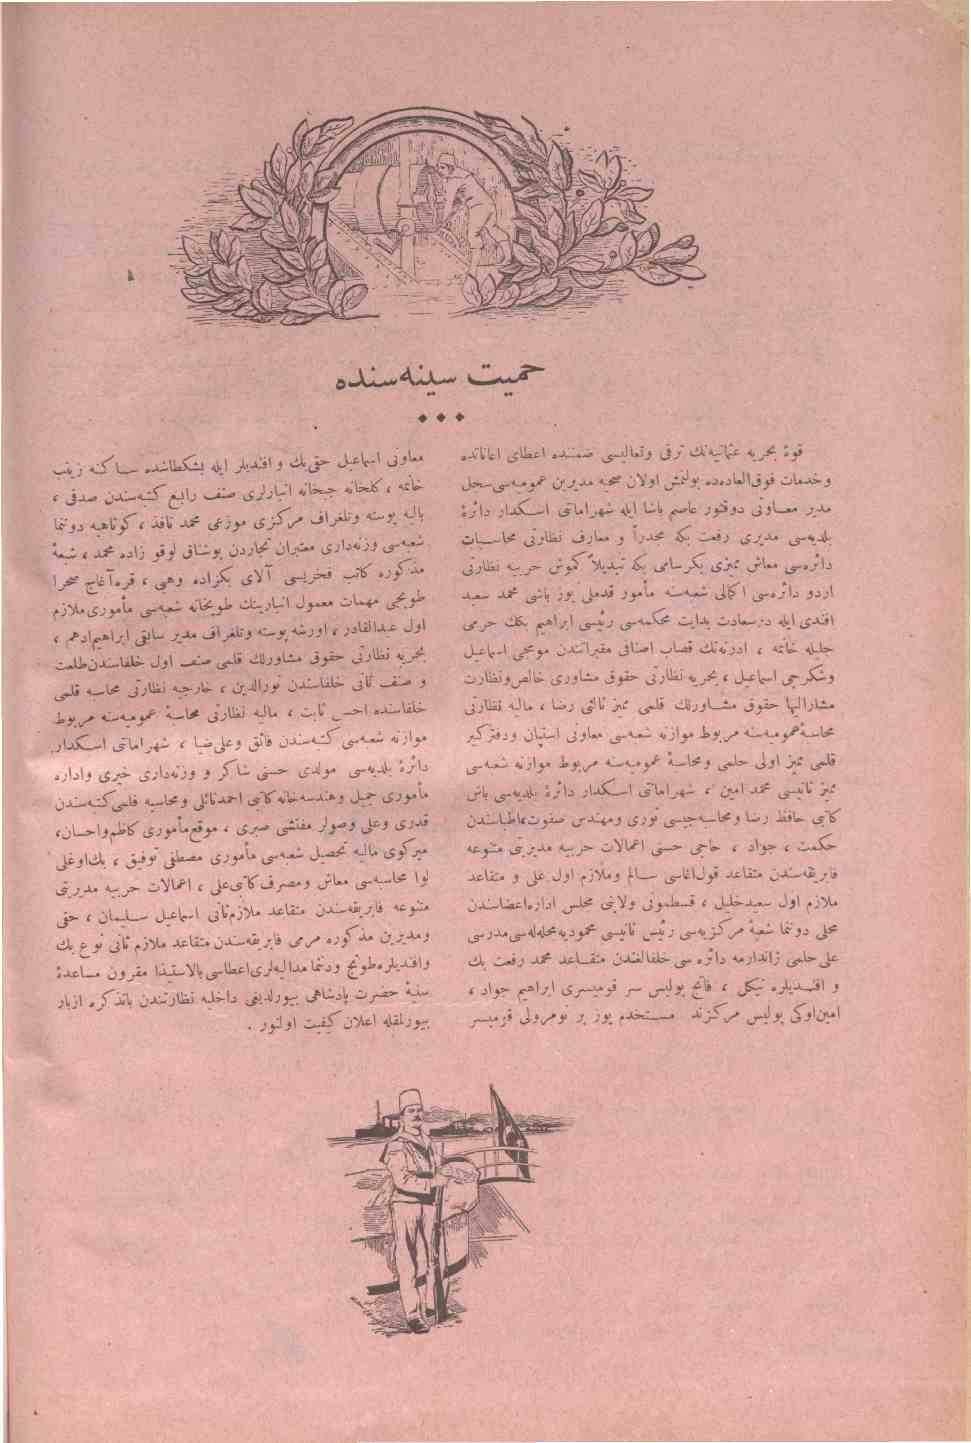 حمیت سینه‌سنده
قوۀ بحریه عثمانیه‌نك ترقی وتعالیسی ضمننده اعطای اعاناتده
وخدمات فوق‌العاده‌ده بولنمش اولان صحیه مدیرین عمومیه‌سی‌سجل
مدیر معاونی دوقتور عاصم پاشا ایله شهرامانتی اسکدار دائرۀ
بلدیه‌سی مدیری رفعت بکه مجدداً و معارف نظارتی محاسبات
دائره‌سی معاش ممیزی بکرسامی بکه تبدیلاً کموش حربیه نظارتی
اردو دائره‌سی اکمالی شعبه‌سنه مأمور قدملی یوز باشی محمد سعید
افندی ایله درسعادت بدایت محکمه‌سی رئیسی ابراهیم بکك حرمی
جلیله خانمه ، ادرنه‌نك قصاب اصنافی معتبراتندن مومجی اسماعیل
وشکرجی اسماعیل ، بحریه نظارتی حقوق مشاوری خالص‌ونظارت
مشارالیها حقوق مشاورلك قلمی ممیز ثالثی رضا ، مالیه نظارتی
محاسبۀ‌عمومیه‌سنه مربوط موازنه شعبه‌سی معاونی استپان ودفترکبیر
قلمی ممیز اولی حلمی ومحاسبۀ عمومیه‌سنه مربوط موازنه شعبه‌سی
ممیز ثانیسی محمد امین ، شهرامانتی اسکدار دائرۀ بلدیه‌سی باش
کاتبی حافظ رضا ومحاسبه‌جیسی نوری ومهندس صفوت،اطباسندن
حکمت ، جواد ، حاجی حسنی اعمالات حربیه مدیریتی متنوعه
فابریقه‌سندن متقاعد قول‌اغاسی سالم وملازم اول علی و متقاعد
ملازم اول سعیدخلیل ، قسطمونی ولایتی مجلس اداره‌اعضاسندن
محلی دوننما شعبۀ مرکزیه‌سی رئیس ثانیسی محمودیه محله‌سی‌مدرسی
علی‌حلمی ژاندارمه دائره سی خلفالغندن متقاعد محمد رفعت بك
و افندیلره نیکل ، فاتح پولیس سر قومیسری ابراهیم جواد ،
امین‌اوکی پولیس مرکزند مستخدم یوز بر نومرولی قومیسر
معاونی اسماعیل حقی‌بك و افندیلر ایله بشکطاشده ساکنه زینب
خانمه ، کلخانه جبخانه انبارلری صنف رابع کتبه‌سندن صدقی ،
بالیه پوسته وتلغراف مرکزی موزعی محمد نافذ ، کوتاهیه دوننما
شعبه‌سی وزنه‌داری معتبران تجاردن بوشناق لوقو زاده محمد ، شعبۀ
مذکوره کاتب فخریسی آلای بکزاده وهبی ، قره‌آغاج صحرا
طوبجی مهمات معمول انبارینك طوبخانه شعبه‌سی مأموری‌ملازم
اول عبدالقادر ، اورشه پوسته وتلغراف مدیر سابقی ابراهیم‌ادهم ،
بحریه نظارتی حقوق مشاورلك قلمی صنف اول خلفاسندن‌طلعت
و صنف ثانی خلفاسندن نورالدین ، خارجیه نظارتی محاسبه قلمی
خلفاسنده ثابت ، مالیه نظارتی محاسبۀ عمومیه‌سنه مربوط
موازنه شعبه‌سی کتبه‌سندن فائق وعلی‌ضیا ، شهرامانتی اسکدار
دائرۀ بلدیه‌سی مولدی حسنی شاکر و وزنه‌داری خیری واداره
مأموری جمیل وهندسه خانه‌کاتبی احمدنائلی ومحاسبه قلمی‌کتبه‌سندن
قدری وعلی وصولر مفتشی صبری ، موقع‌مأموری کاظم‌واحسان،
میرکوی مالیه تحصیل شعبه‌سی مأموری مصطفی توفیق ، بك‌اوغلی
لوا محاسبه‌سی معاش ومصرف کاتبی‌علی ، اعمالات حربیه مدیریتی
متنوعه فابریقه‌سندن متقاعد ملازم‌ثانی اسماعیل سلیمان ، حقی
ومدیرین مذکوره مرمی فابریقه‌سندن متقاعد ملازم ثانی نوع بك
وافندیلره‌طونج ودننما مدالیه‌لری‌اعطاسی بالاستیذا مقرون مساعدۀ
سنیۀ حضرت پادشاهی بیورلدیغی داخلیه نظارتندن باتذکره ازبار
بیورلمقله اعلان کیفیت اولنور .